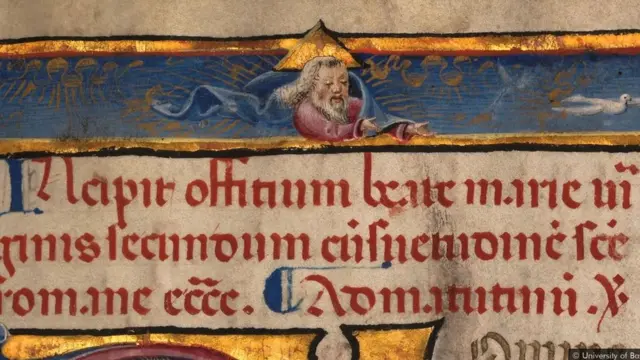 INcipit offitium beate marie vi
ginis secundum cūsuetudinē scē
romane eccc̄. Ad matutinū. ꝟ.
© University of Ba